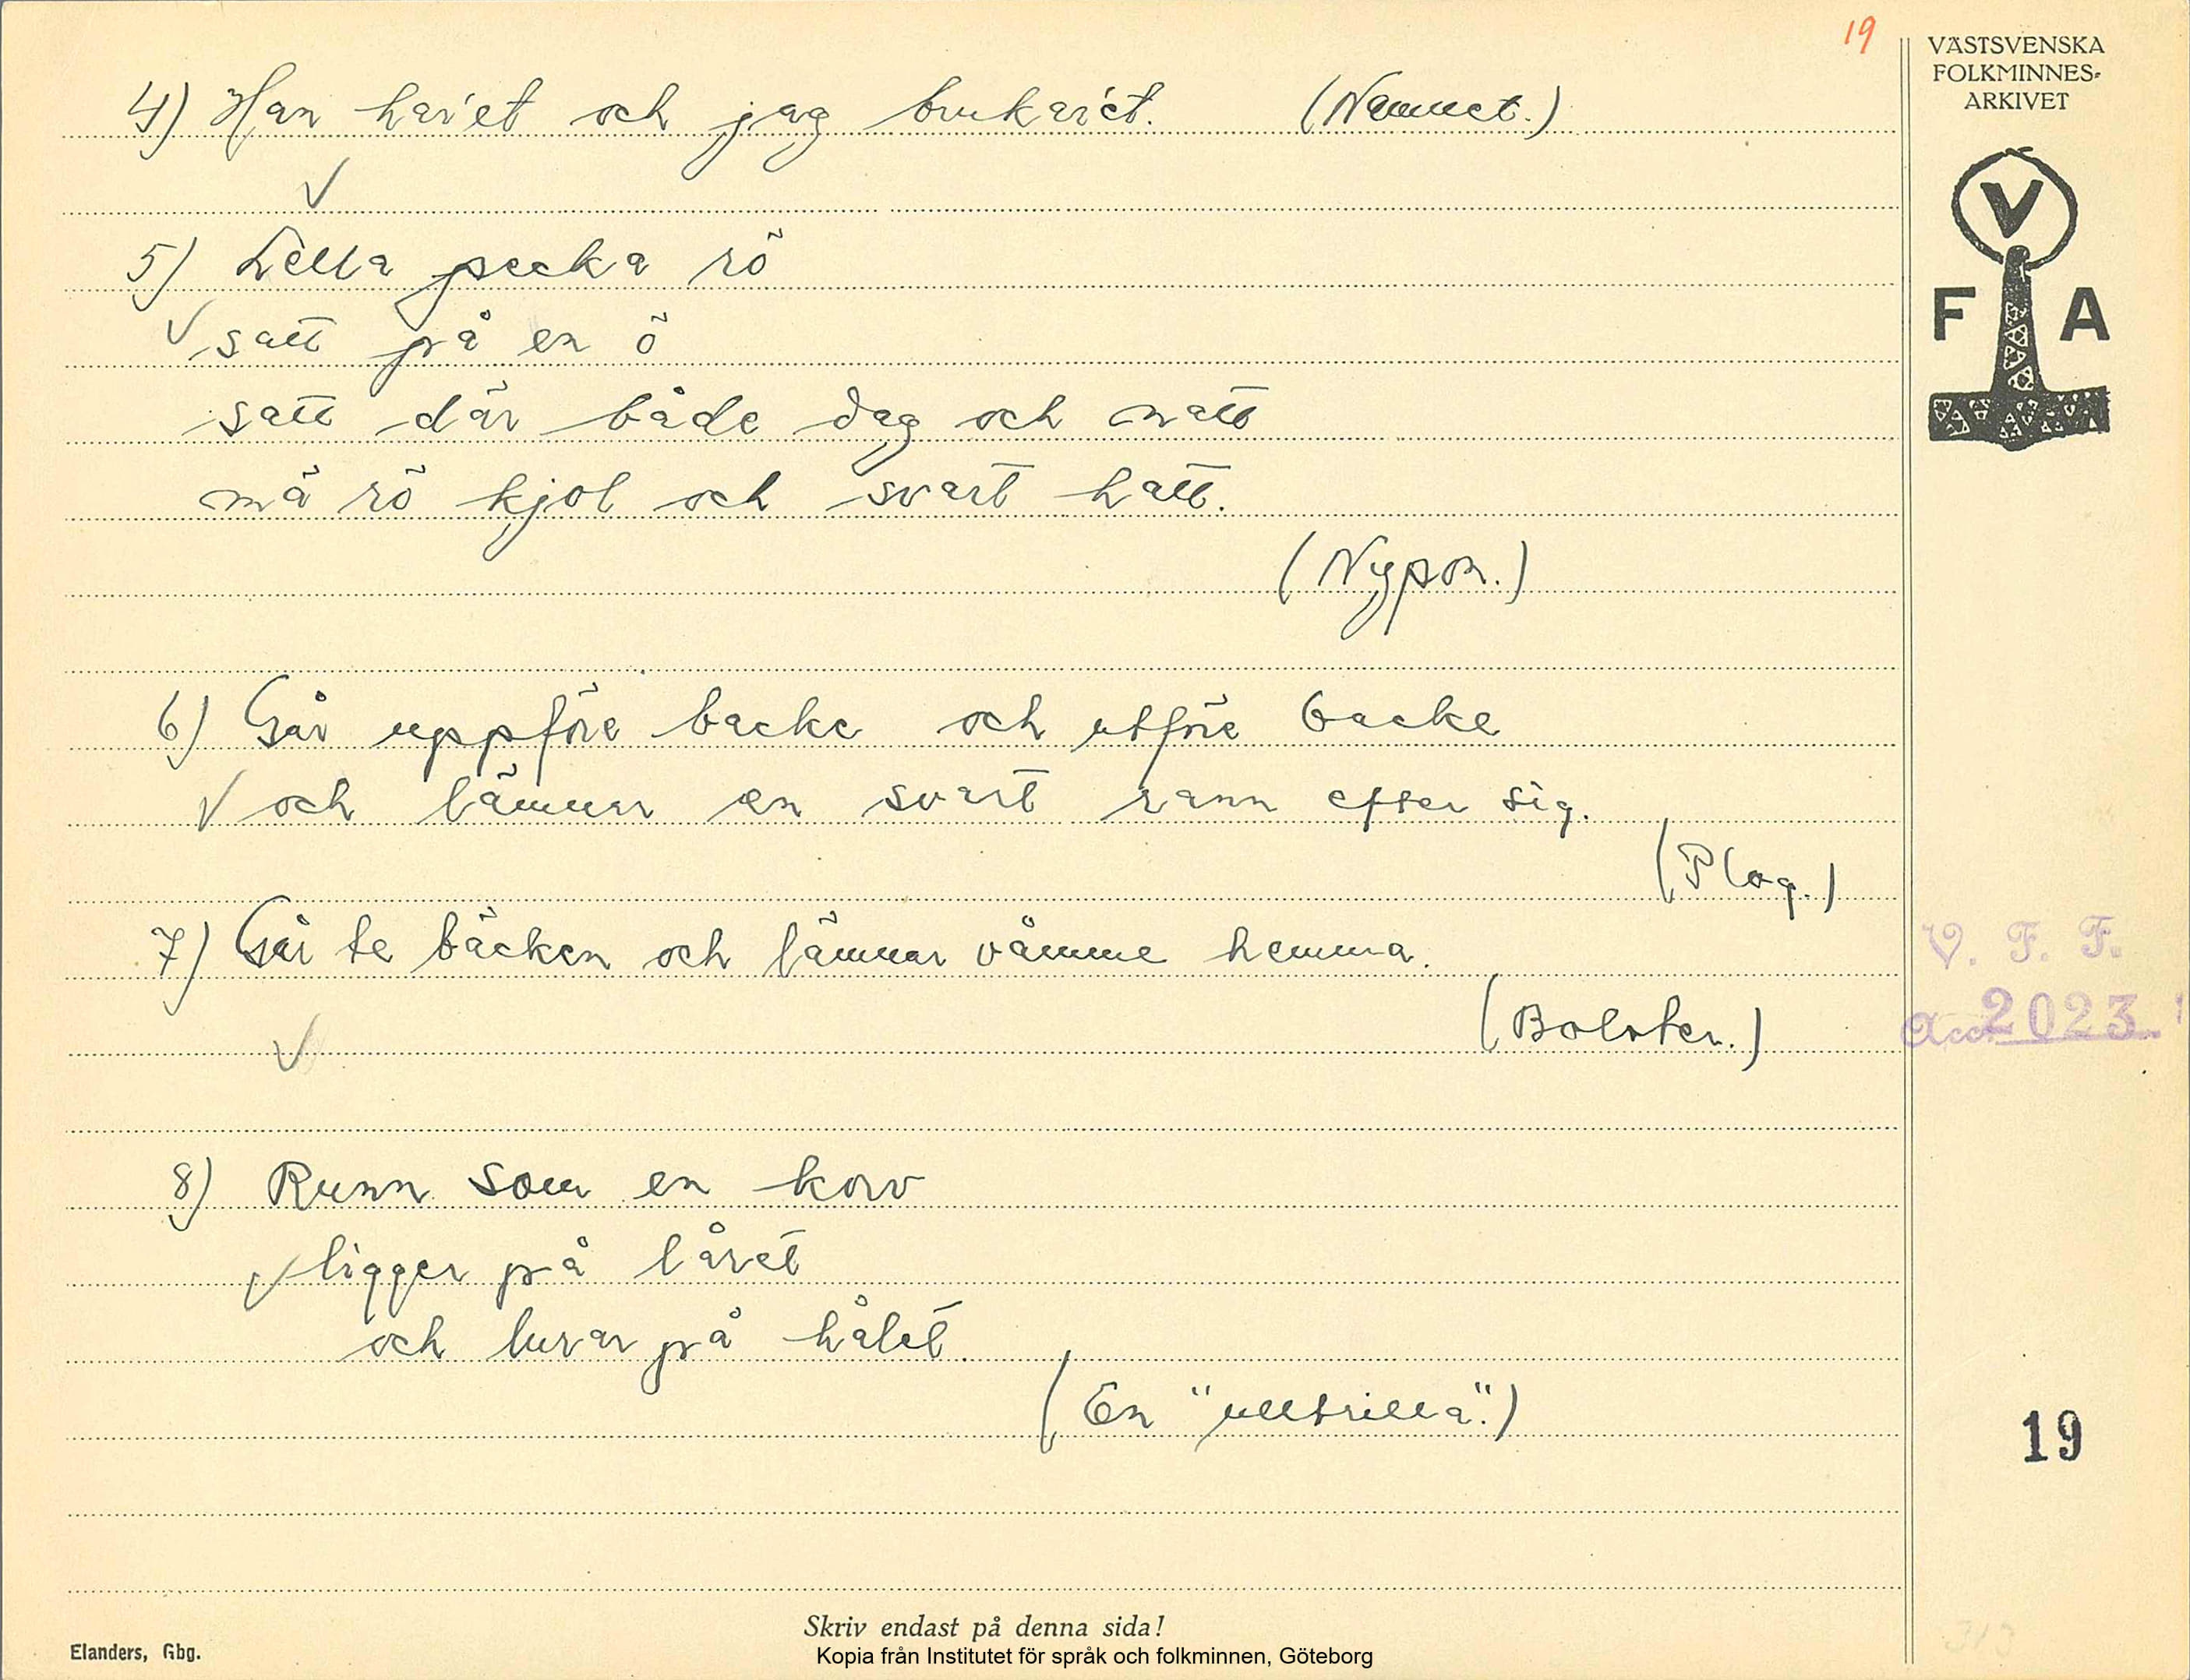 19
VÄSTSVENSKA
FOLKMINNES-
ARKIVET
V
F A
4) Han har'et och jag brukar'et. (Namnet.)
5) Lella pecka rö
satt på en ö
satt där både dag och natt
mä rö kjol och svart hatt.
(Nypon.)
6) Går uppföre backe och utföre backe
och lämnar en svart rann efter sig.
(Plog.)
7) Går te bäcken och lämnar våmme hemma.
(Bolster.)
8) Runn som en korv
ligger på låret
och lurar på hålet.
(En "ulltrilla".)
V. F. F.
Acc. 2023
19
Skriv endast på denna sida!
Elanders, Gbg.
Kopia från Institutet för språk och folkminnen, Göteborg